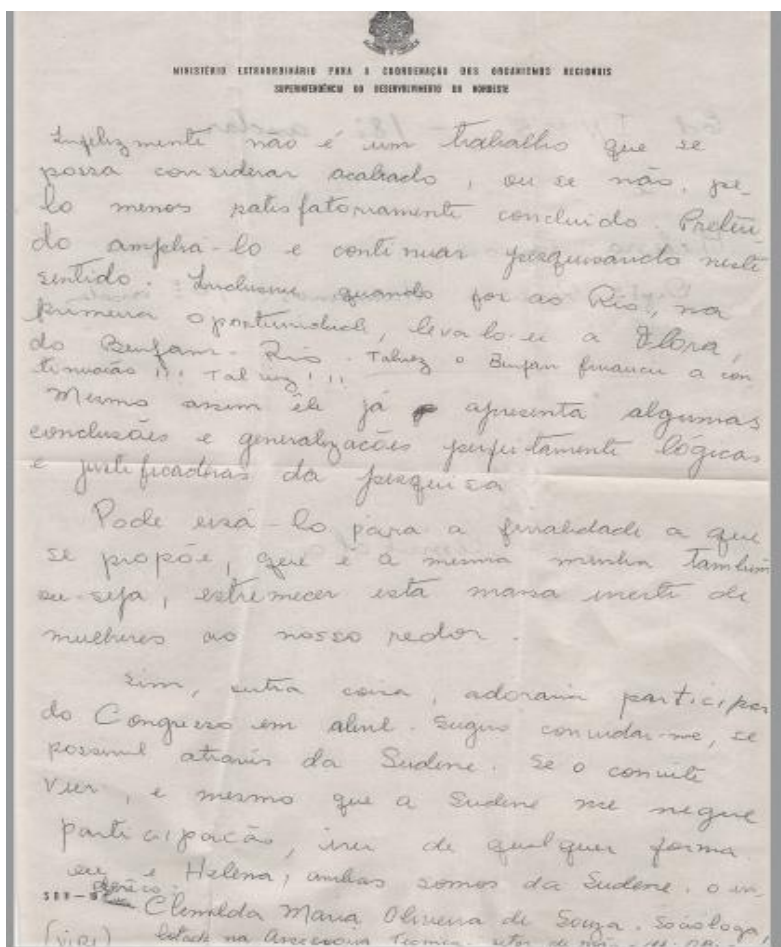 MINISTÉRIO EXTRAORDINÁRIO PARA A COORDENAÇÃO DOS ORGANISMOS REGIONAIS
SUPERINTENDÊNCIA DO DESENVOLVIMENTO DO NORDESTE
Infelizmente não é um trabalho que se
possa considerar acabado, ou se não, pe-
lo menos satisfatoriamente concluido. Preten-
do ampliá-lo e continuar pesquisando neste
sentido. Inclusive quando for ao Rio, na
primeira oportunidade, leva-lo-ei a Flora,
do Benfam-Rio. Talvez o Benfam financie a con
tinuação !!! Talvez!!!
Mesmo assim êle já apresenta algumas
conclusões e generalizações perfeitamente lógicas
e justificadoras da pesquisa
Pode usá-lo para a finalidade a que
se propõe, que é a mesma minha também
ou-seja, estremecer esta massa inerte de
mulheres ao nosso redor.
Sim, outra coisa, adoraria participar
do Congresso em abril. Sugiro convidar-me, se
possivel através da Sudene. Se o convite
vier, e mesmo que a Sudene me negue
participação, irei de qualquer forma.
eu e Helena, ambas somos da Sudene. o en-
derêço:
Clemilda Maria Oliveira de Souza. Socióloga,
(VIRE) lotada na Assessoria Técnica, setor de